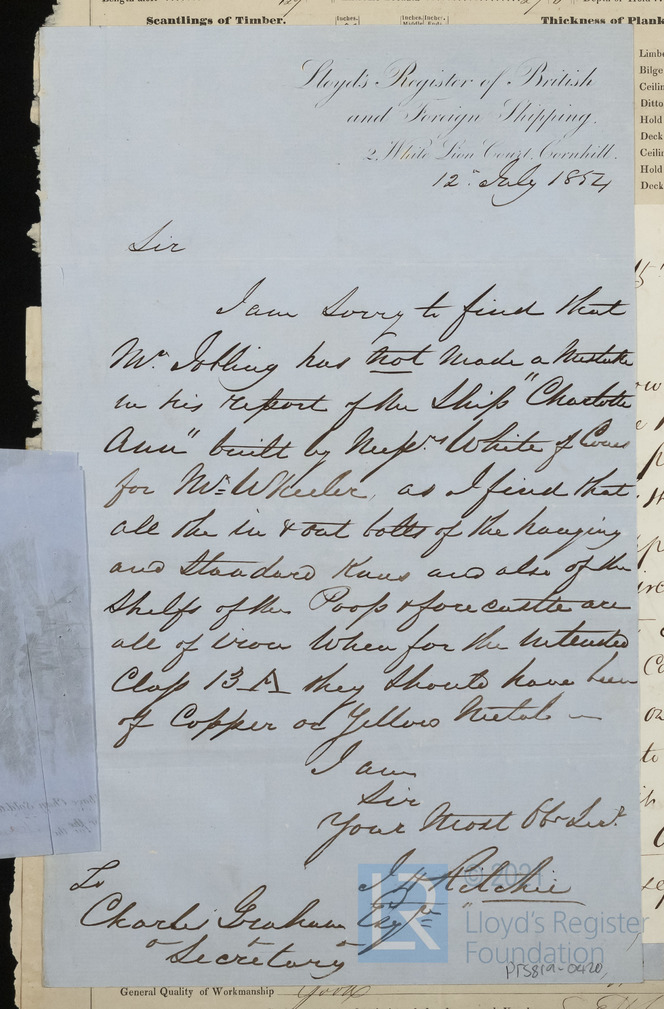 Scantlings of Timber.
Inches.
Inches. Inches.
Thickness of Plank
Lloyd's Register of British
and Foreign Shipping.
2, White Lion Court, Cornhill.
12 July 1854
Sir
I am Sorry to find that
Mr. Jobling has not Made a Mistake
in his report of the Ship "Charlotte
Ann" built by Messrs White of Cowes
for Mr. Wheeler, as I find that
all the in & out bolts of the hanging
and Standard Knees and also of the
Shelfs of the Poop & forecastle are
all of iron When for the intended
Class 13 A they Should have been
of Copper or Yellow Metal
I am
Sir
Your Most Obt Servt
Ritchie
To
Charles Graham Esqre
Secretary
Limbe
Bilge
Ceilin
Ditto
Hold
Deck
Ceilin
Hold
Deck
General Quality of Workmanship Good
© 2021
LR
Lloyd's Register
Foundation
PF5819-0420